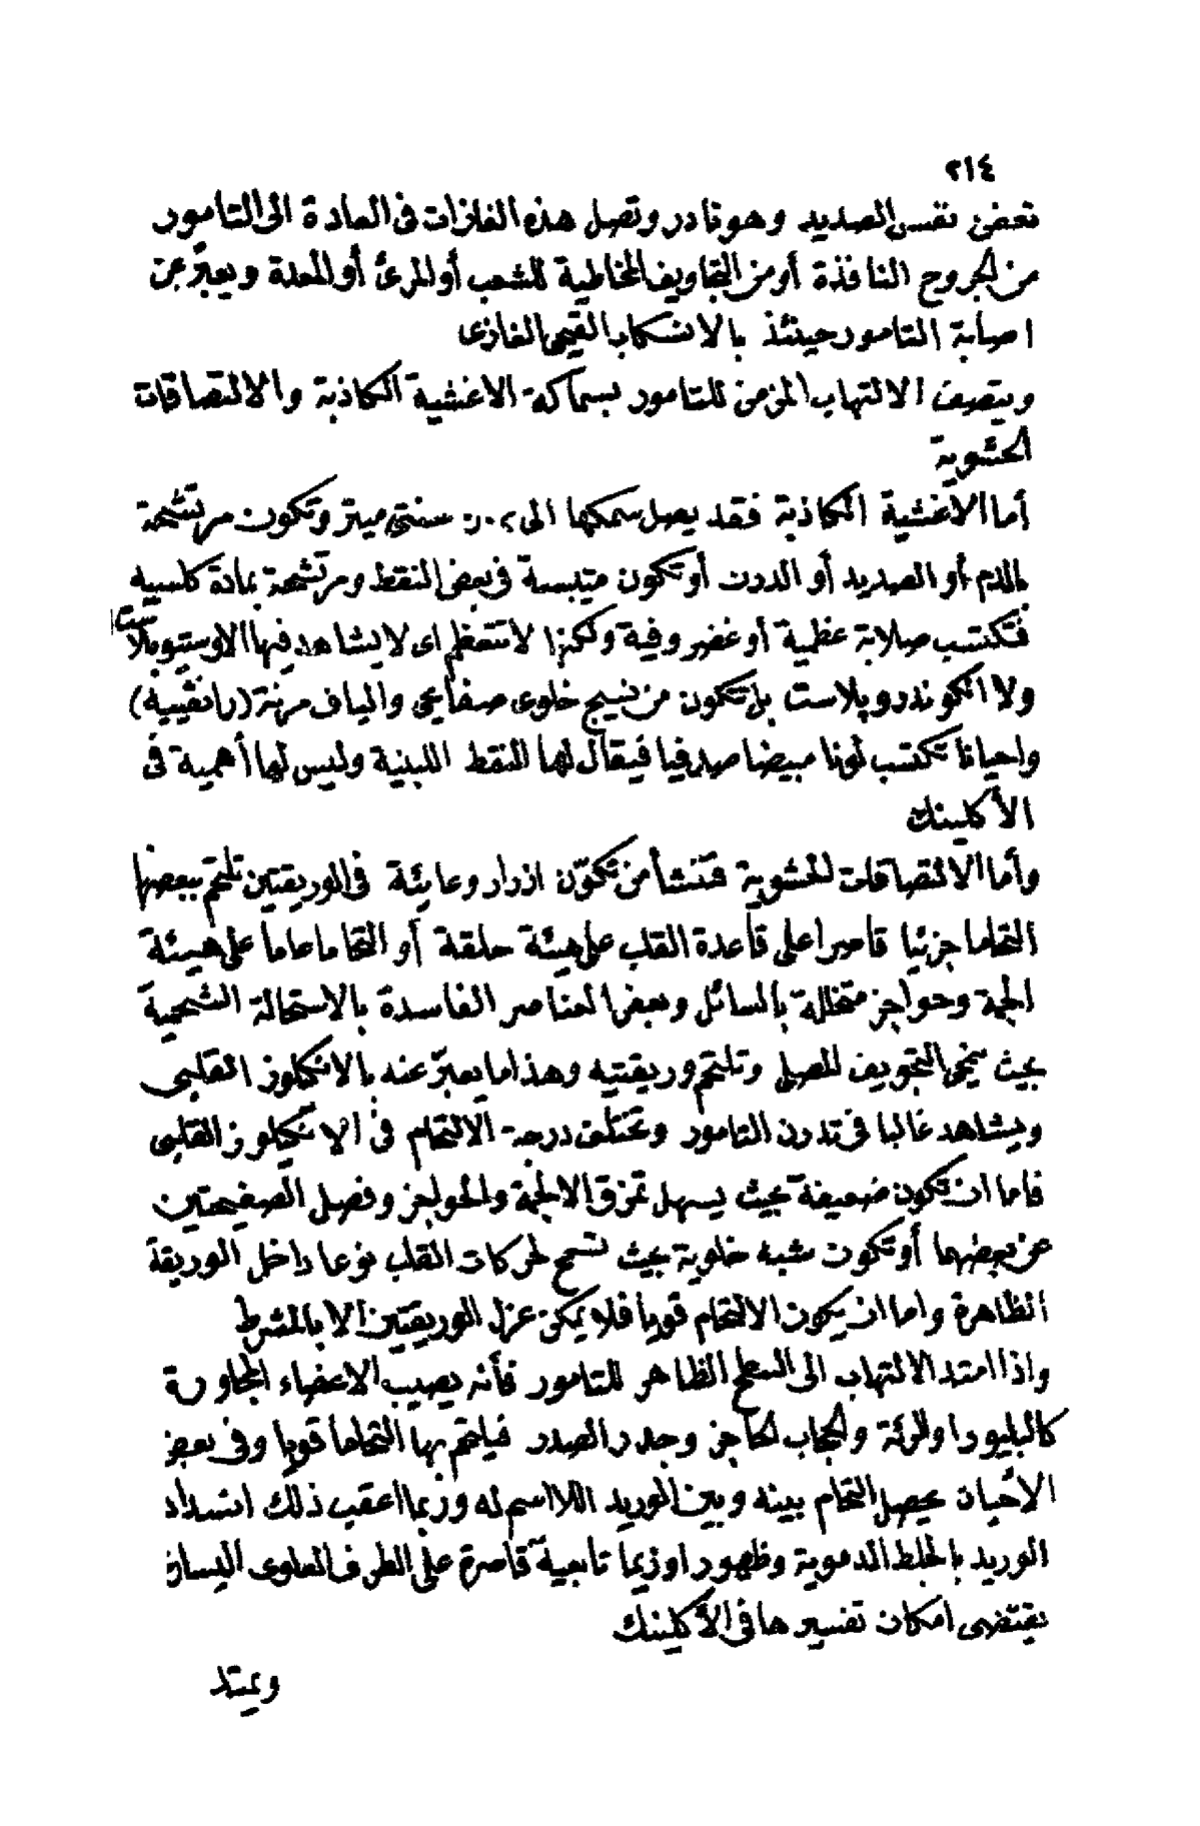 ٢١٤
تعفن نفس الصديد وهو نادر وتصل هذه الغازات فى العادة الى التامور
من الجروح النافذة أو من التجاويف المخاطية للشعب أو المرئ أو المعدة ويعبّر عن
اصابة التامور حينئذ بالانسكاب القيحى الغازى
ويتصف الالتهاب المزمن للتامور بسماكة الاغشية الكاذبة والالتصاقات
الحشوية
أما الاغشية الكاذبة فقد يصل سمكها الى سنتى ميتر وتكون مرتشحة
بالدم أو الصديد أو الدرن أو تكون متيبسة فى بعض النقط ومرتشحة بمادة كلسيه
فتكتسب صلابة عظمية أو غضروفية ولكنها لا تتعظم اى لا يشاهد فيها الاوستيوبلاست
ولا الكوندروبلاست بل تتكون من نسيج خلوى صفايحى والياف مرنة (راتفييه)
واحيانا تكتسب لونا مبيضا صدفيا فيقال لها النقط اللبنية وليس لها أهمية فى
الأكلينك
وأما الالتصاقات الحشوية فتنشأ من تكوّن ازرار وعايئة فى الوريقتين تلتحم ببعضها
التحاما جزئيا قاصرا على قاعدة القلب على هيئة حلقة أو التحاما عاما على هيئة
الجمة وحواجز متخللة بالسائل وبعض العناصر الفاسدة بالاستحالة الشحمية
بحيث ينمحى التجويف المصلى وتلتحم وريقتيه وهذا ما يعبّر عنه بالانكلوز القلبى
ويشاهد غالبا فى تدرن التامور وتختلف درجة الالتحام فى الانكيلوز القلبى
فاما ان تكون ضعيفة بحيث يسهل تمزق الالجمة والحواجز وفصل الصفيحتين
عن بعضهما أو تكون شبه خلوية بحيث تسمح لحركات القلب نوعا داخل الوريقة
الظاهرة واما ان يكون الالتحام قويا فلا يمكن عزل الوريقتين الا بالمشرط
واذا امتد الالتهاب الى السطح الظاهر للتامور فأنه يصيب الاعضاء المجاورة
كالبليورا والرئة والحجاب الحاجز وجدر الصدر فيلتحم بها التحاما قويا وفى بعض
الأحيان يحصل التحام بينه وبين الوريد اللااسم له وربما اعقب ذلك انسداد
الوريد بالجلط الدموية وظهور اوزيما تابعية قاصرة على الطرف العلوى اليسار
يقتضى امكان تفسيرها فى الأكلينك
ويمتد